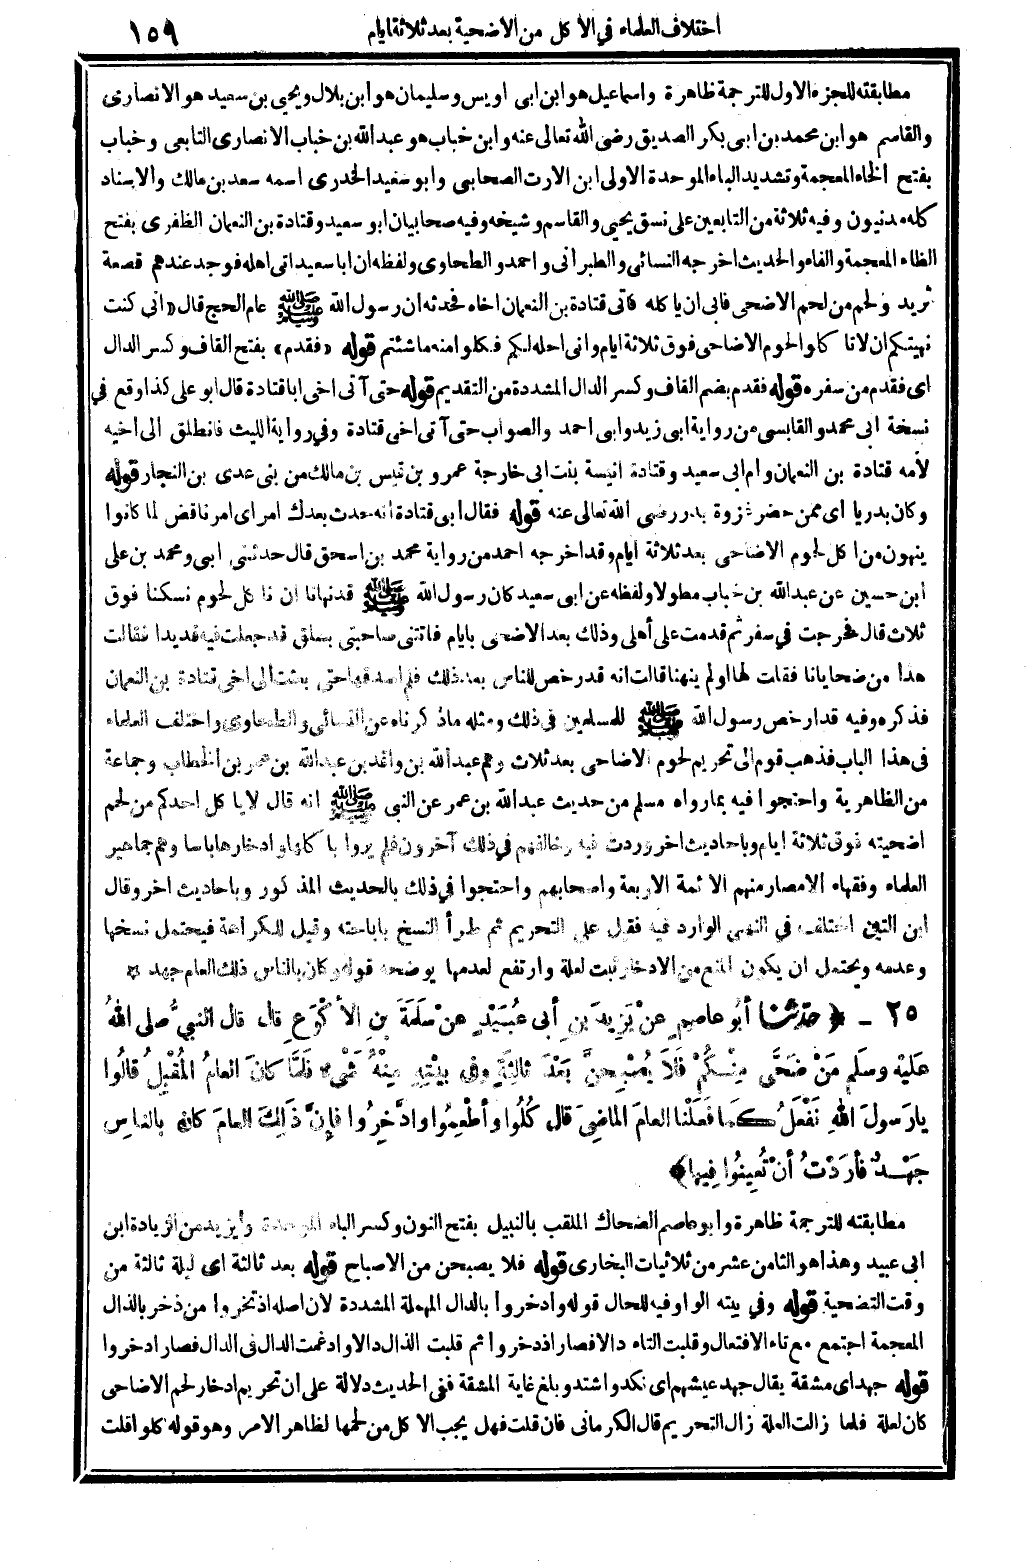 اختلاف العلماء في الأكل من الاضحية بعد ثلاثة ايام ١٥٩
مطابقته للجزء الاول للترجمة ظاهرة واسماعيل هو ابن ابى اويس وسليمان هو ابن بلال ويحيي بن سعيد هو الانصارى
والقاسم هو ابن محمد بن ابى بكر الصديق رضى الله تعالى عنه وابن خباب هو عبد الله بن خباب الانصارى التابعى وخباب
بفتح الخاء المعجمة وتشديد الباء الموحدة الاولى ابن الارت الصحابي وابو سعيد الخدرى اسمه سعد بن مالك والاسناد
كله مدنيون وفيه ثلاثة من التابعين على نسق يحيي والقاسم وشيخه وفيه صحابيان ابو سعيد وقتادة بن النعمان الظفرى بفتح
الظاء المعجمة والفاء والحديث اخرجه النسائي والطبرانى واحمد والطحاوى ولفظه ان ابا سعيد اتى اهله فوجد عندهم قصعة
ثريد ولحم من لحم الاضحى فابى ان ياكله فاتى قتادة بن النعمان اخاه فحدثه ان رسول الله ﷺ عام الحج قال «انى كنت
نهيتكم ان لا تاكلوا لحوم الاضاحى فوق ثلاثة ايام وانى احله لكم فكلوا منه ماشئتم قوله «فقدم» بفتح القاف وكسر الدال
اى فقدم من سفره قوله فقدم بضم القاف وكسر الدال المشددة من التقديم قوله حتى آتى اخى ابا قتادة قال ابو على كذا وقع في
نسخة ابى محمد والقابسى من رواية ابى زيد وابى احمد والصواب حتى آتى اخى قتادة وفي رواية الليث فانطلق الى اخيه
لأمه قتادة بن النعمان وام ابى سعيد وقتادة انيسة بنت ابى خارجة عمرو بن قيس بن مالك من بنى عدى بن النجار قوله
وكان بدريا اى ممن حضر غزوة بدر رضى الله تعالى عنه قوله فقال ابى قتادة انه حدث بعدك امر اى امر ناقض لما كانوا
ينهون من اكل لحوم الاضاحى بعد ثلاثة ايام وقد اخرجه احمد من رواية محمد بن اسحق قال حدثنى ابى ومحمد بن على
ابن حسين عن عبد الله بن خباب مطولا ولفظه عن ابى سعيد كان رسول الله ﷺ قد نهانا ان نأكل لحوم نسكنا فوق
ثلاث قال فخرجت في سفر ثم قدمت على أهلى وذلك بعد الاضحى بايام فاتتنى صاحبتى بسلق قد جعلت فيه قديدا فقالت
هذا من ضحايانا فقلت لها اولم ينهنا قالت انه قد رخص للناس بعد ذلك فلم اصدقها حتى بعثت الى اخى قتادة بن النعمان
فذكره وفيه قد ارخص رسول الله ﷺ للمسلمين في ذلك ومثله ماذكرناه عن النسائي والطحاوى واختلف العلماء
فى هذا الباب فذهب قوم الى تحريم لحوم الاضاحى بعد ثلاث وهم عبد الله بن واقد بن عبد الله بن عمر بن الخطاب وجماعة
من الظاهرية واحتجوا فيه بما رواه مسلم من حديث عبد الله بن عمر عن النبى ﷺ انه قال لا ياكل احدكم من لحم
اضحيته فوق ثلاثة ايام وباحاديث اخر وردت فيه وخالفهم في ذلك آخرون فلم يروا باكلها وادخارها باسا وهم جماهير
العلماء وفقهاء الامصار منهم الائمة الاربعة واصحابهم واحتجوا في ذلك بالحديث المذكور وباحاديث اخر وقال
ابن التين اختلف في النهى الوارد فيه فقيل على التحريم ثم طرأ النسخ باباحته وقيل للكراهة فيحتمل نسخها
وعدمه ويحتمل ان يكون المنع من الادخار ثبت لعلة وارتفع لعدمها يوضحه قوله وكان بالناس ذلك العام جهد *
٢٥ - ﴿ حدّثنا أبُو عاصِمٍ عنْ يَزِيدَ بنِ أبى عُبَيْدٍ عنْ سَلَمَةَ بنِ الأكْوَعِ قال قال النبيُّ صلى اللهُ
عليْه وسَلم مَنْ ضَحَّى مِنْكُمْ فَلاَ يُصْبِحَنَّ بَعْدَ ثالِثَةٍ وفى بيْتِهِ مِنْهُ شَيْءٌ فَلَمَّا كانَ العامُ المُقْبِلُ قالُوا
يا رَسولَ اللهِ نَفْعَلُ كَما فَعَلْنا العامَ الماضِىَ قال كُلُوا وأطْعِمُوا وادَّخِرُوا فإنَّ ذَلِكَ العامَ كانَ بالنَّاسِ
جَهْدٌ فأرَدْتُ أنْ تُعِينُوا فِيها﴾
مطابقته للترجمة ظاهرة وابو عاصم الضحاك الملقب بالنبيل بفتح النون وكسر الباء الموحدة ويزيد من الزيادة ابن
ابى عبيد وهذا هو الثامن عشر من ثلاثيات البخارى قوله فلا يصبحن من الاصباح قوله بعد ثالثة اى ليلة ثالثة من
وقت التضحية قوله وفي بيته الواو فيه للحال قوله وادخروا بالدال المهملة المشددة لان اصله اذتخروا من ذخر بالذال
المعجمة اجتمع مع تاء الافتعال وقلبت التاء دالا فصار اذدخروا ثم قلبت الذال دالا وادغمت الدال فى الدال فصار ادخروا
قوله جهد اى مشقة يقال جهد عيشهم اى نكد واشتد وبلغ غاية المشقة ففى الحديث دلالة على ان تحريم ادخار لحم الاضاحى
كان لعلة فلما زالت العلة زال التحريم قال الكرمانى فان قلت فهل يجب الاكل من لحمها لظاهر الامر وهو قوله كلوا قلت